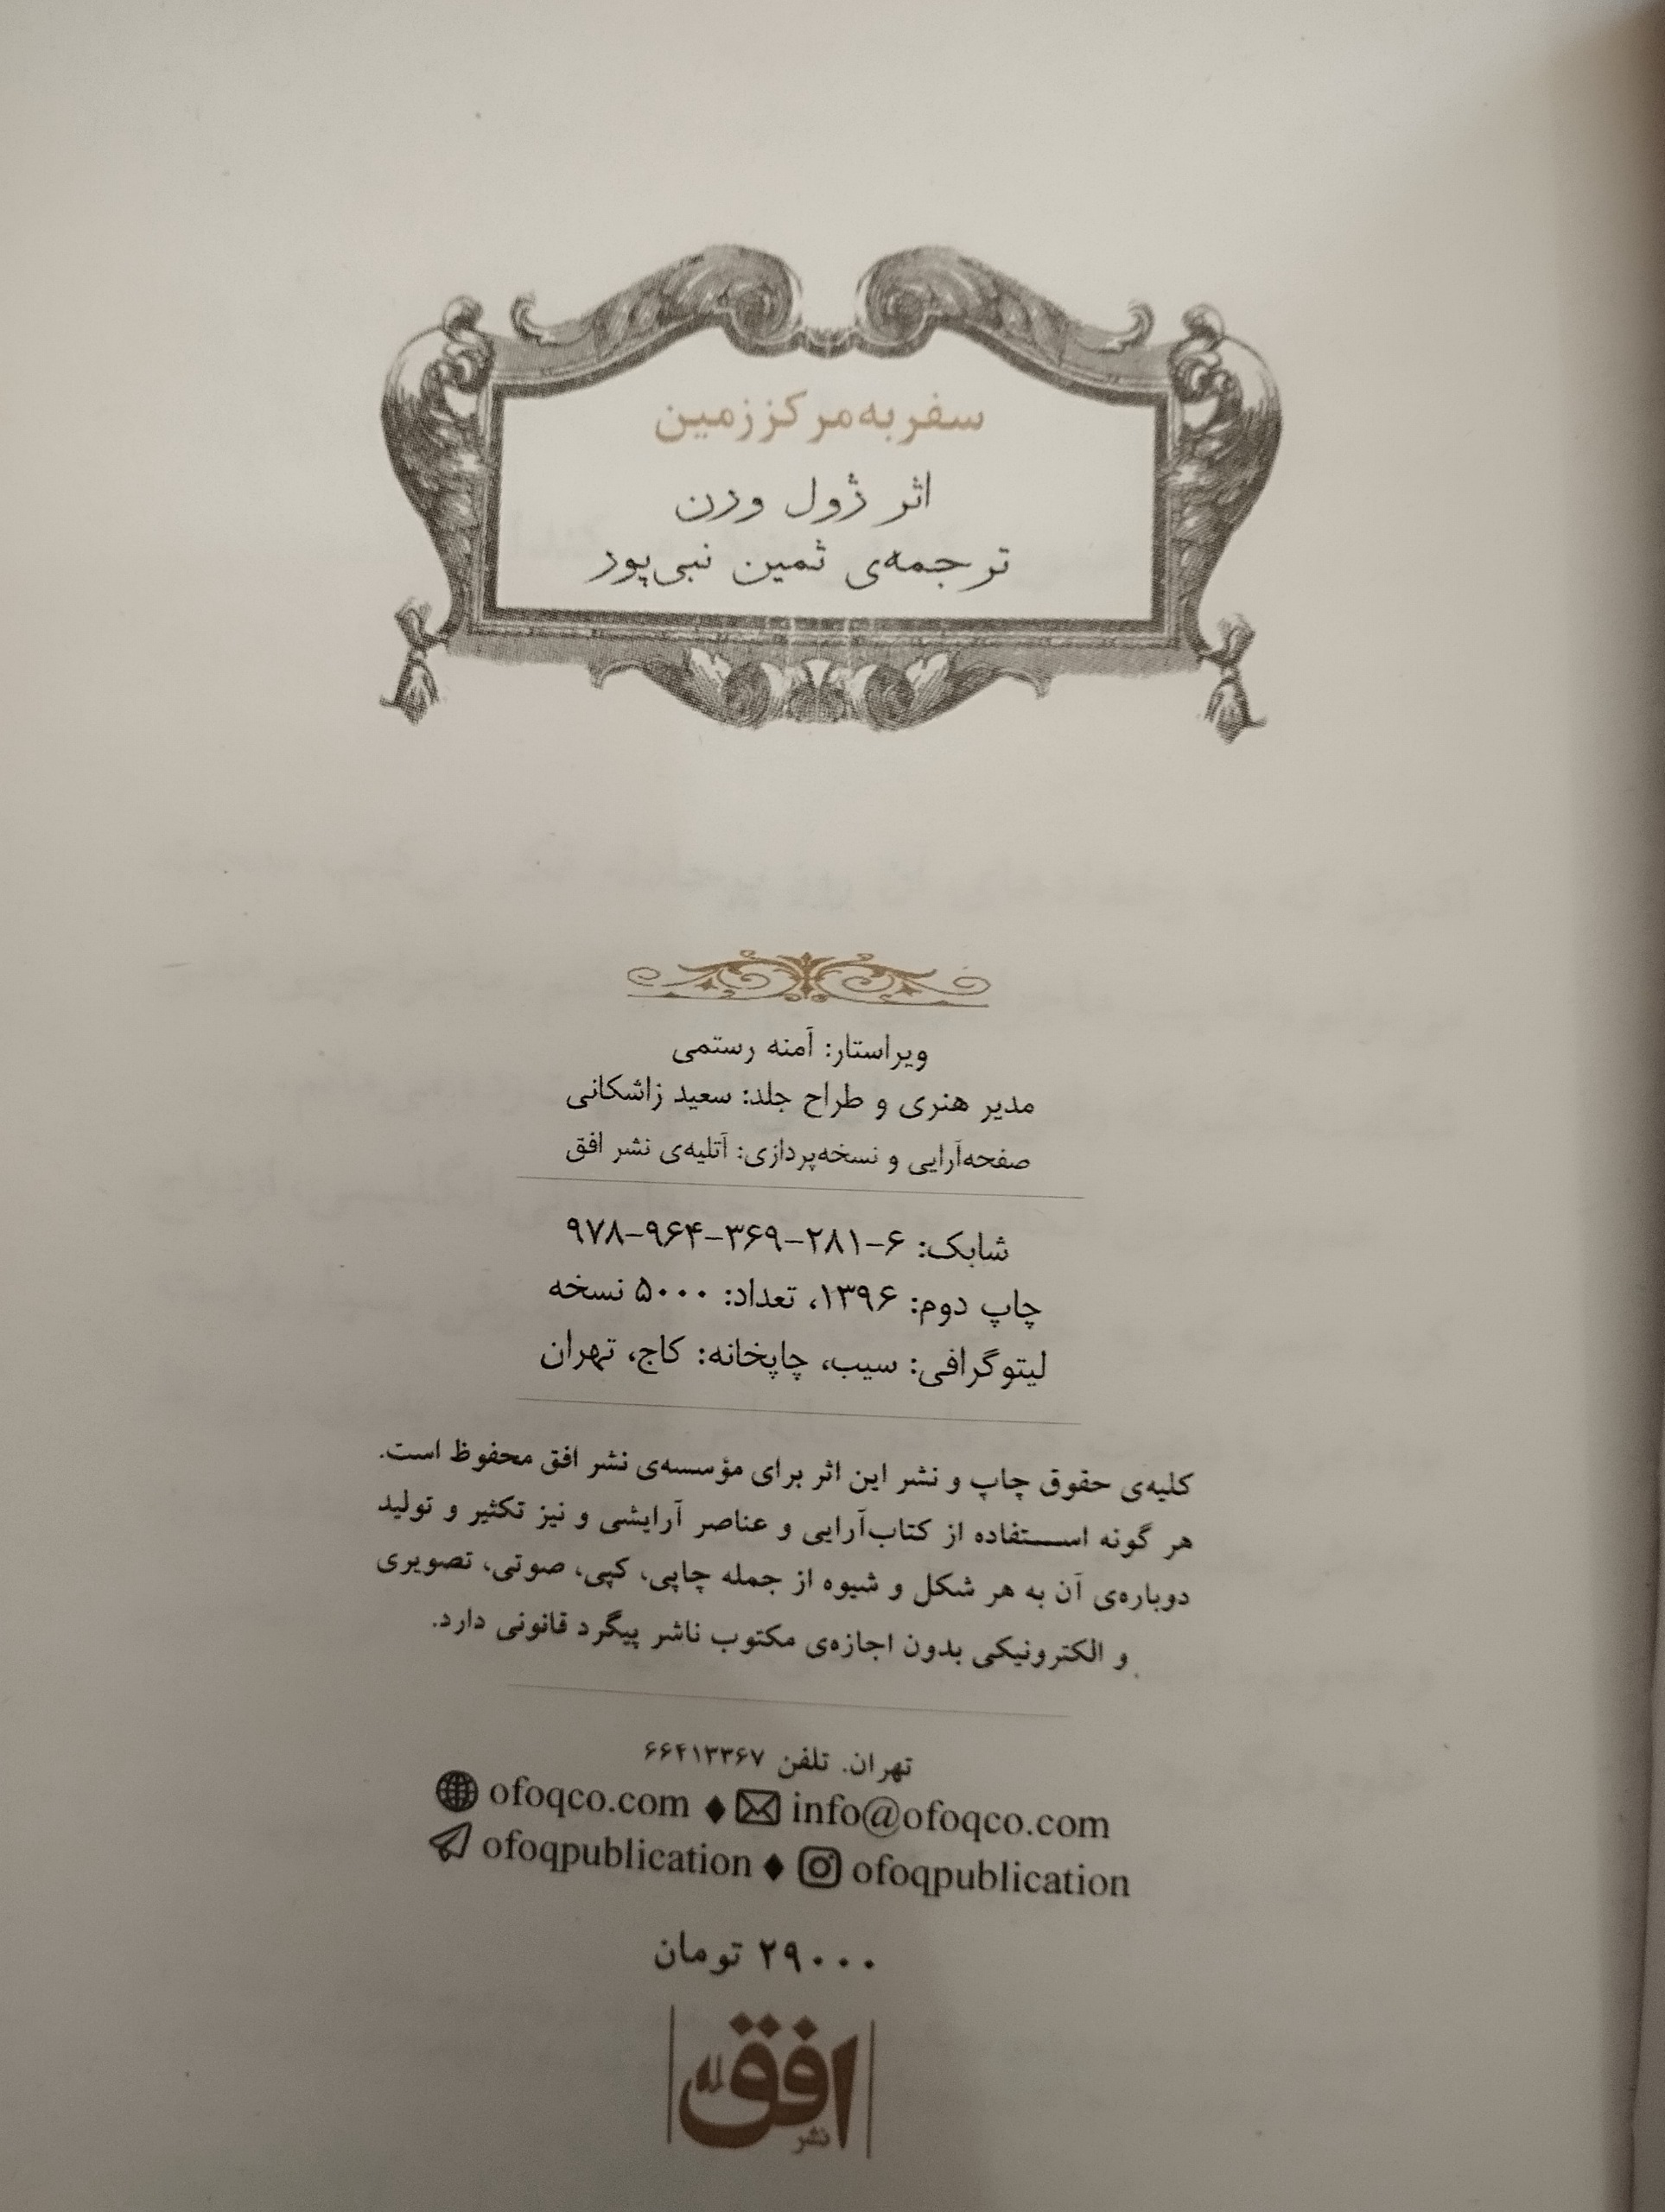 سفر به مرکز زمین
اثر ژول ورن
ترجمه‌ی ثمین نبی‌پور
ویراستار: آمنه رستمی
مدیر هنری و طراح جلد: سعید زاشکانی
صفحه‌آرایی و نسخه‌پردازی: آتلیه‌ی نشر افق
شابک: ۶-۲۸۱-۳۶۹-۹۶۴-۹۷۸
چاپ دوم: ۱۳۹۶، تعداد: ۵۰۰۰ نسخه
لیتوگرافی: سیب، چاپخانه: کاج، تهران
کلیه‌ی حقوق چاپ و نشر این اثر برای مؤسسه‌ی نشر افق محفوظ است.
هر گونه اســـتفاده از کتاب‌آرایی و عناصر آرایشی و نیز تکثیر و تولید
دوباره‌ی آن به هر شکل و شیوه از جمله چاپی، کپی، صوتی، تصویری
و الکترونیکی بدون اجازه‌ی مکتوب ناشر پیگرد قانونی دارد.
تهران. تلفن ۶۶۴۱۳۳۶۷
ofoqco.com ♦ info@ofoqco.com
ofoqpublication ♦ ofoqpublication
۲۹۰۰۰ تومان
افق
نشر